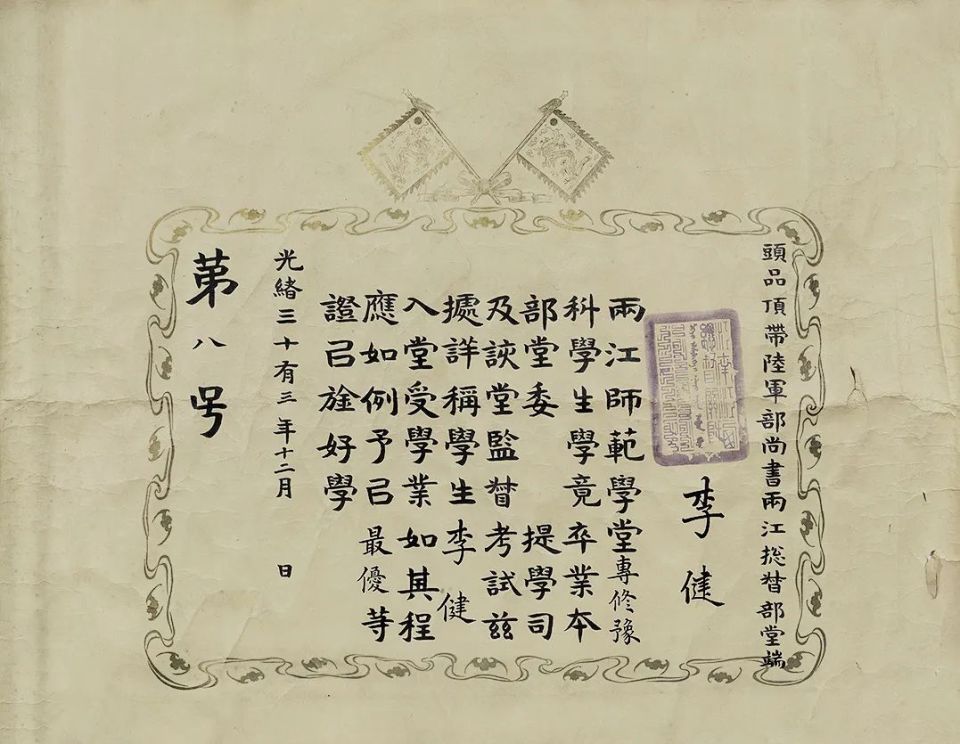 頭品頂帶陸軍部尚書兩江総督部堂端
李健
兩江師範學堂專修豫
科學生學竟卒業本
部堂委　提學司
及該堂監督考試茲
據詳稱學生李健
入堂受學業如其程
應如例予㠯最優等
證㠯旌好學
光緒三十有三年十二月　日
苐八号